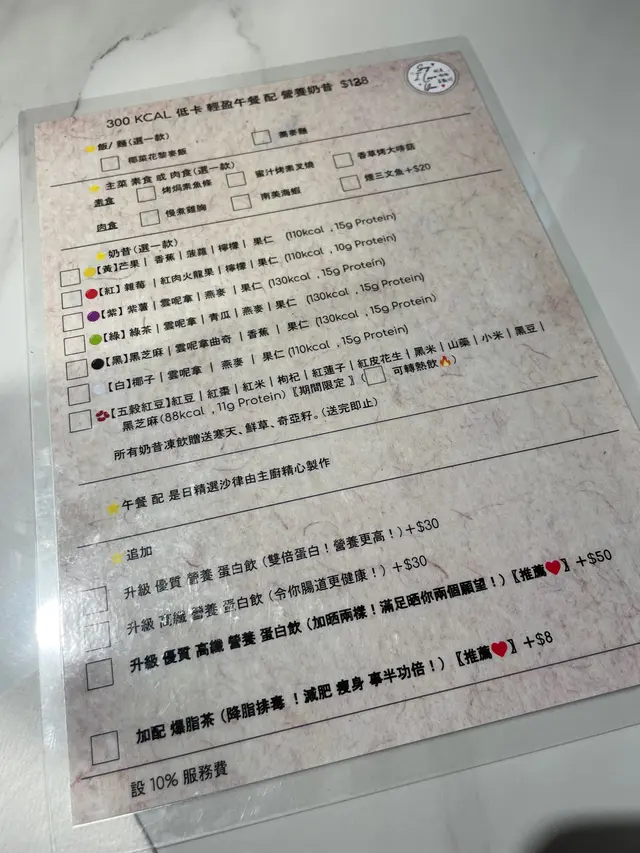 300 KCAL 低卡 輕盈午餐 配 營養奶昔 $128
飯/ 麵(選一款)
椰菜花藜麥飯 蕎麥麵
主菜 素食 或 肉食(選一款)
素食 烤焗素魚條 蜜汁烤素叉燒 香草烤大啡菇
肉食 慢煮雞胸 南美海蝦 煙三文魚+$20
奶昔(選一款)
【黃】芒果 | 香蕉 | 菠蘿 | 檸檬 | 果仁 (110kcal , 15g Protein)
【紅】雜莓 | 紅肉火龍果 | 檸檬 | 果仁 (110kcal , 10g Protein)
【紫】紫薯 | 雲呢拿 | 燕麥 | 果仁 (130kcal , 15g Protein)
【綠】綠茶 | 雲呢拿 | 青瓜 | 燕麥 | 果仁 (130kcal , 15g Protein)
【黑】黑芝麻 | 雲呢拿曲奇 | 香蕉 | 果仁 (130kcal , 15g Protein)
【白】椰子 | 雲呢拿 | 燕麥 | 果仁 (110kcal , 15g Protein)
【五穀紅豆】紅豆 | 紅棗 | 紅米 | 枸杞 | 紅蓮子 | 紅皮花生 | 黑米 | 山藥 | 小米 | 黑豆 |
黑芝麻(88kcal , 11g Protein)〖期間限定 〗( 可轉熱飲🔥)
所有奶昔凍飲贈送寒天、鮮草、奇亞籽。(送完即止)
午餐 配 是日精選沙律由主廚精心製作
追加
升級 優質 營養 蛋白飲 (雙倍蛋白!營養更高!)+$30
升級 高纖 營養 蛋白飲 (令你腸道更健康!)+$30
升級 優質 高纖 營養 蛋白飲 (加晒兩樣!滿足晒你兩個願望!)〖推薦❤️〗+$50
加配 爆脂茶 (降脂排毒 !減肥 瘦身 事半功倍!)〖推薦❤️〗+$8
設 10% 服務費